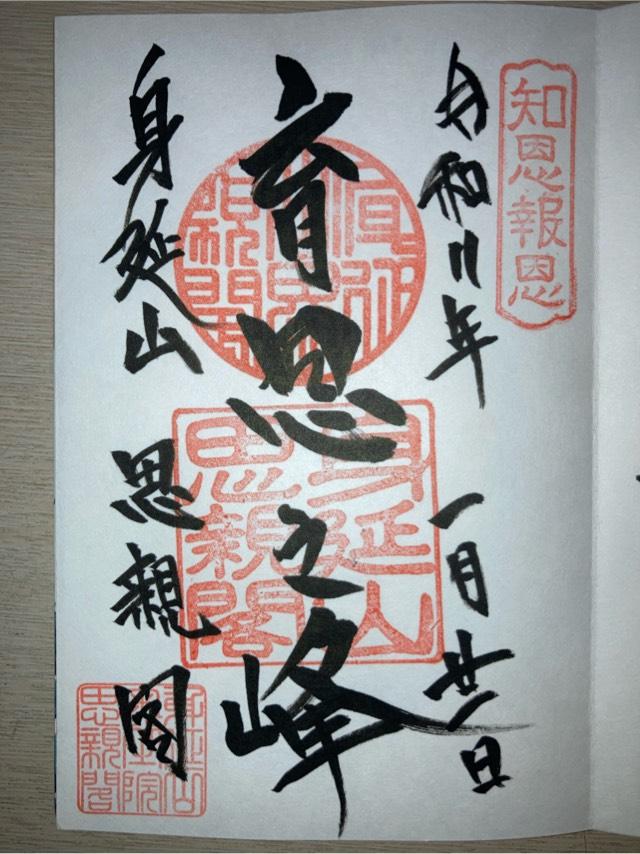 知恩報恩
令和二年 一月廿一日
育恩之峰
身延山
思親閣
身延山 思親閣
思親閣